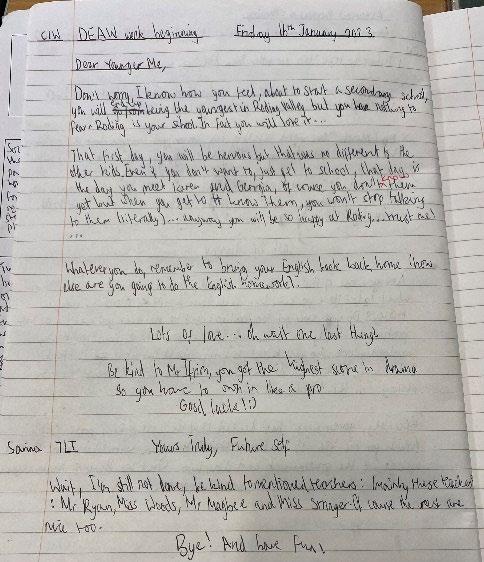 C/W DEAW week beginning Friday 16th January 2023
Dear Younger Me,
Don't worry, I know how you feel, about to start a secondary school,
you will end up being the youngest in Roding Valley but you have nothing to
fear. Roding is your school. In fact you will love it...
That first day, you will be nervous but that was no different to the
other kids. Even if you don't want to, just get to school, that day is
the day you meet Karen and Georgia, of course you don't know them
yet but when you get to know them, you won't stop talking
to them (literally)... anyway you will be so happy at Roding... trust me!
...
Whatever you do, remember to bring your English book back home (how
else are you going to do the English homework).
Lots of love... oh wait one last thing!
Be kind to Mr you get the highest score in drama
so you have to own in like a pro
Good luck! :)
7LI Yours Truly, Future Self
Wait, I'm still not done, be kind to mentioned teachers: (mainly these teachers
: Mr Ryan, Miss Woods, Mr and Miss of course the rest are
nice too.
Bye! And have Fun!